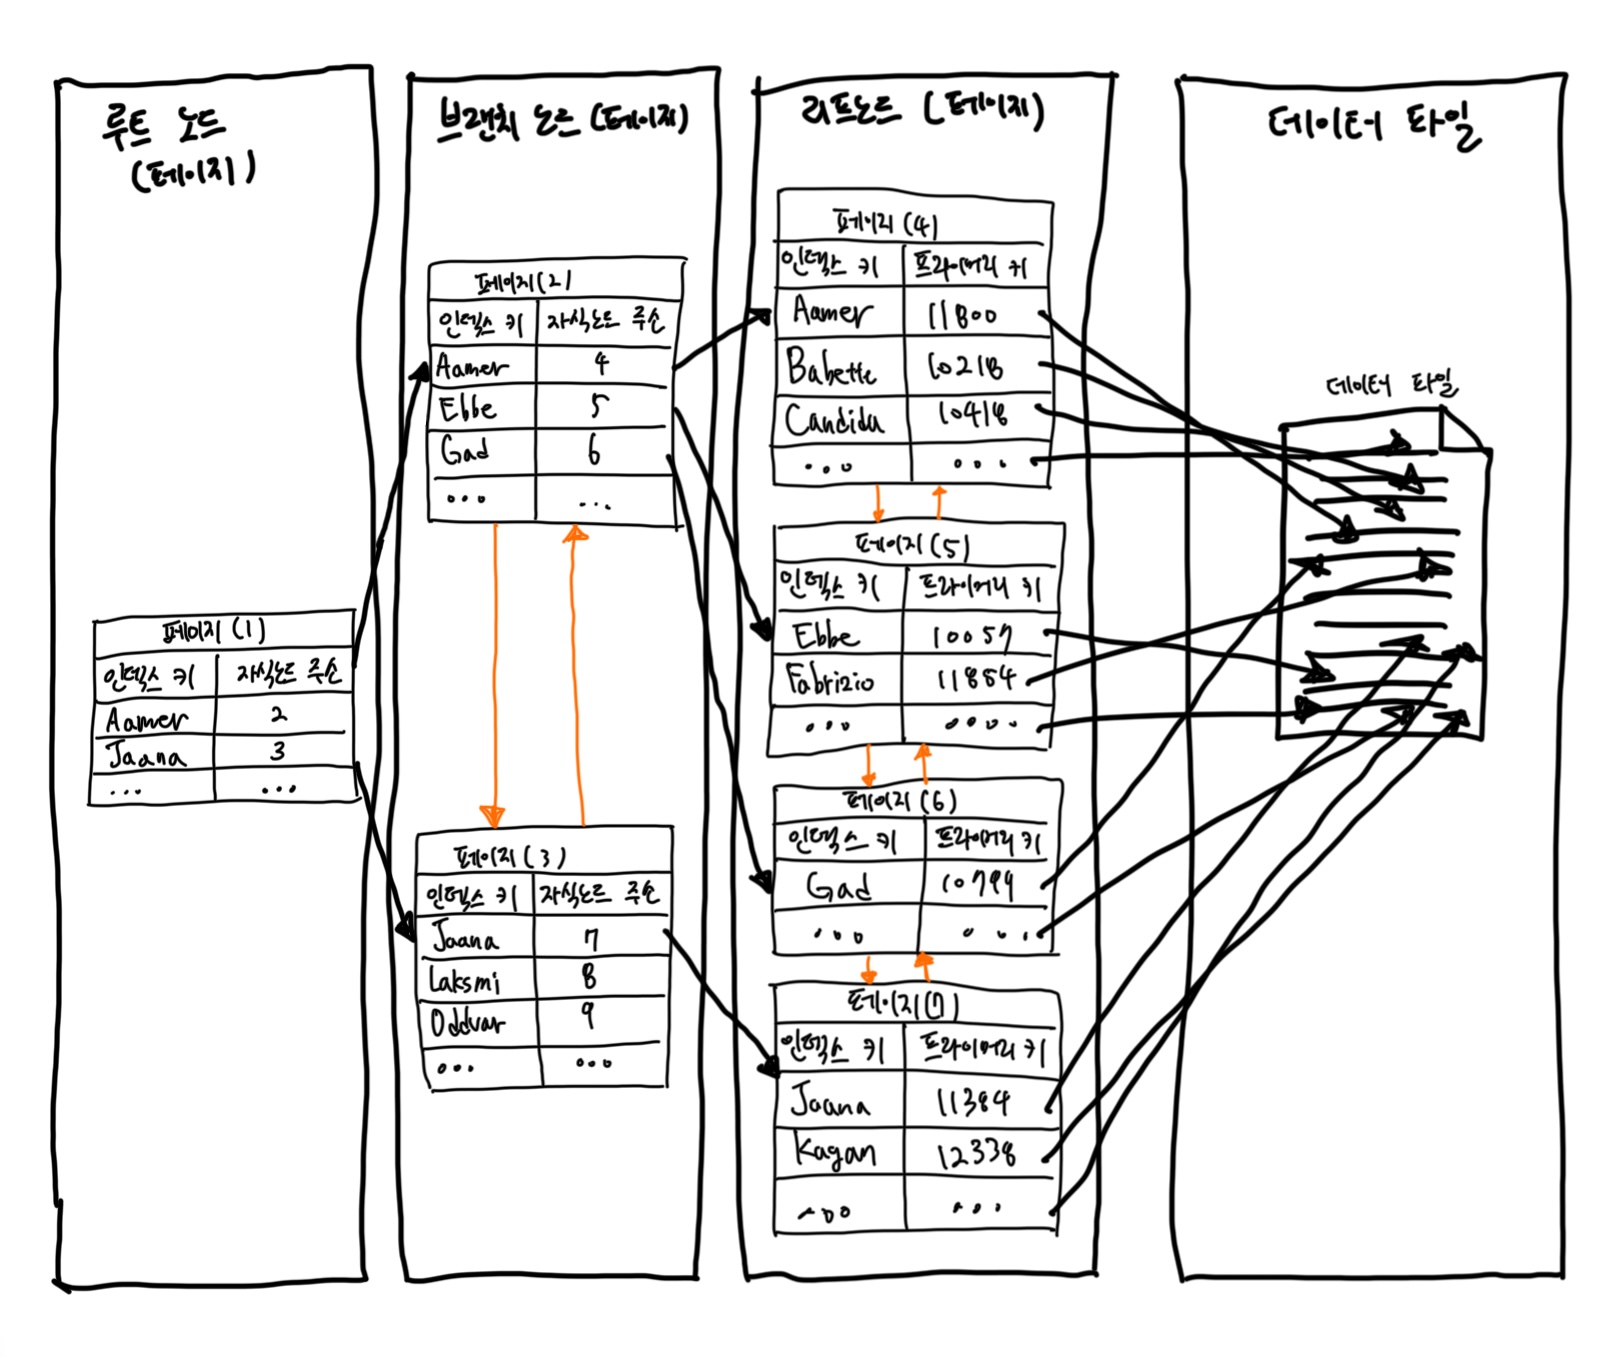 루트 노드
(페이지)
페이지(1)
인덱스 키 자식노드 주소
Aamer 2
Jaana 3
... ...
브랜치 노드(페이지)
페이지(2)
인덱스 키 자식노드 주소
Aamer 4
Ebbe 5
Gad 6
... ...
페이지(3)
인덱스 키 자식노드 주소
Jaana 7
Laksmi 8
Oddvar 9
... ...
리프노드 (페이지)
페이지(4)
인덱스 키 프라이머리 키
Aamer 11800
Babette 10218
Candida 10418
... ...
페이지(5)
인덱스 키 프라이머리 키
Ebbe 10057
Fabrizio 11854
... ....
페이지(6)
인덱스 키 프라이머리 키
Gad 10799
... ...
페이지(7)
인덱스 키 프라이머리 키
Jaana 11384
Kagan 12338
... ...
데이터 파일
데이터 파일